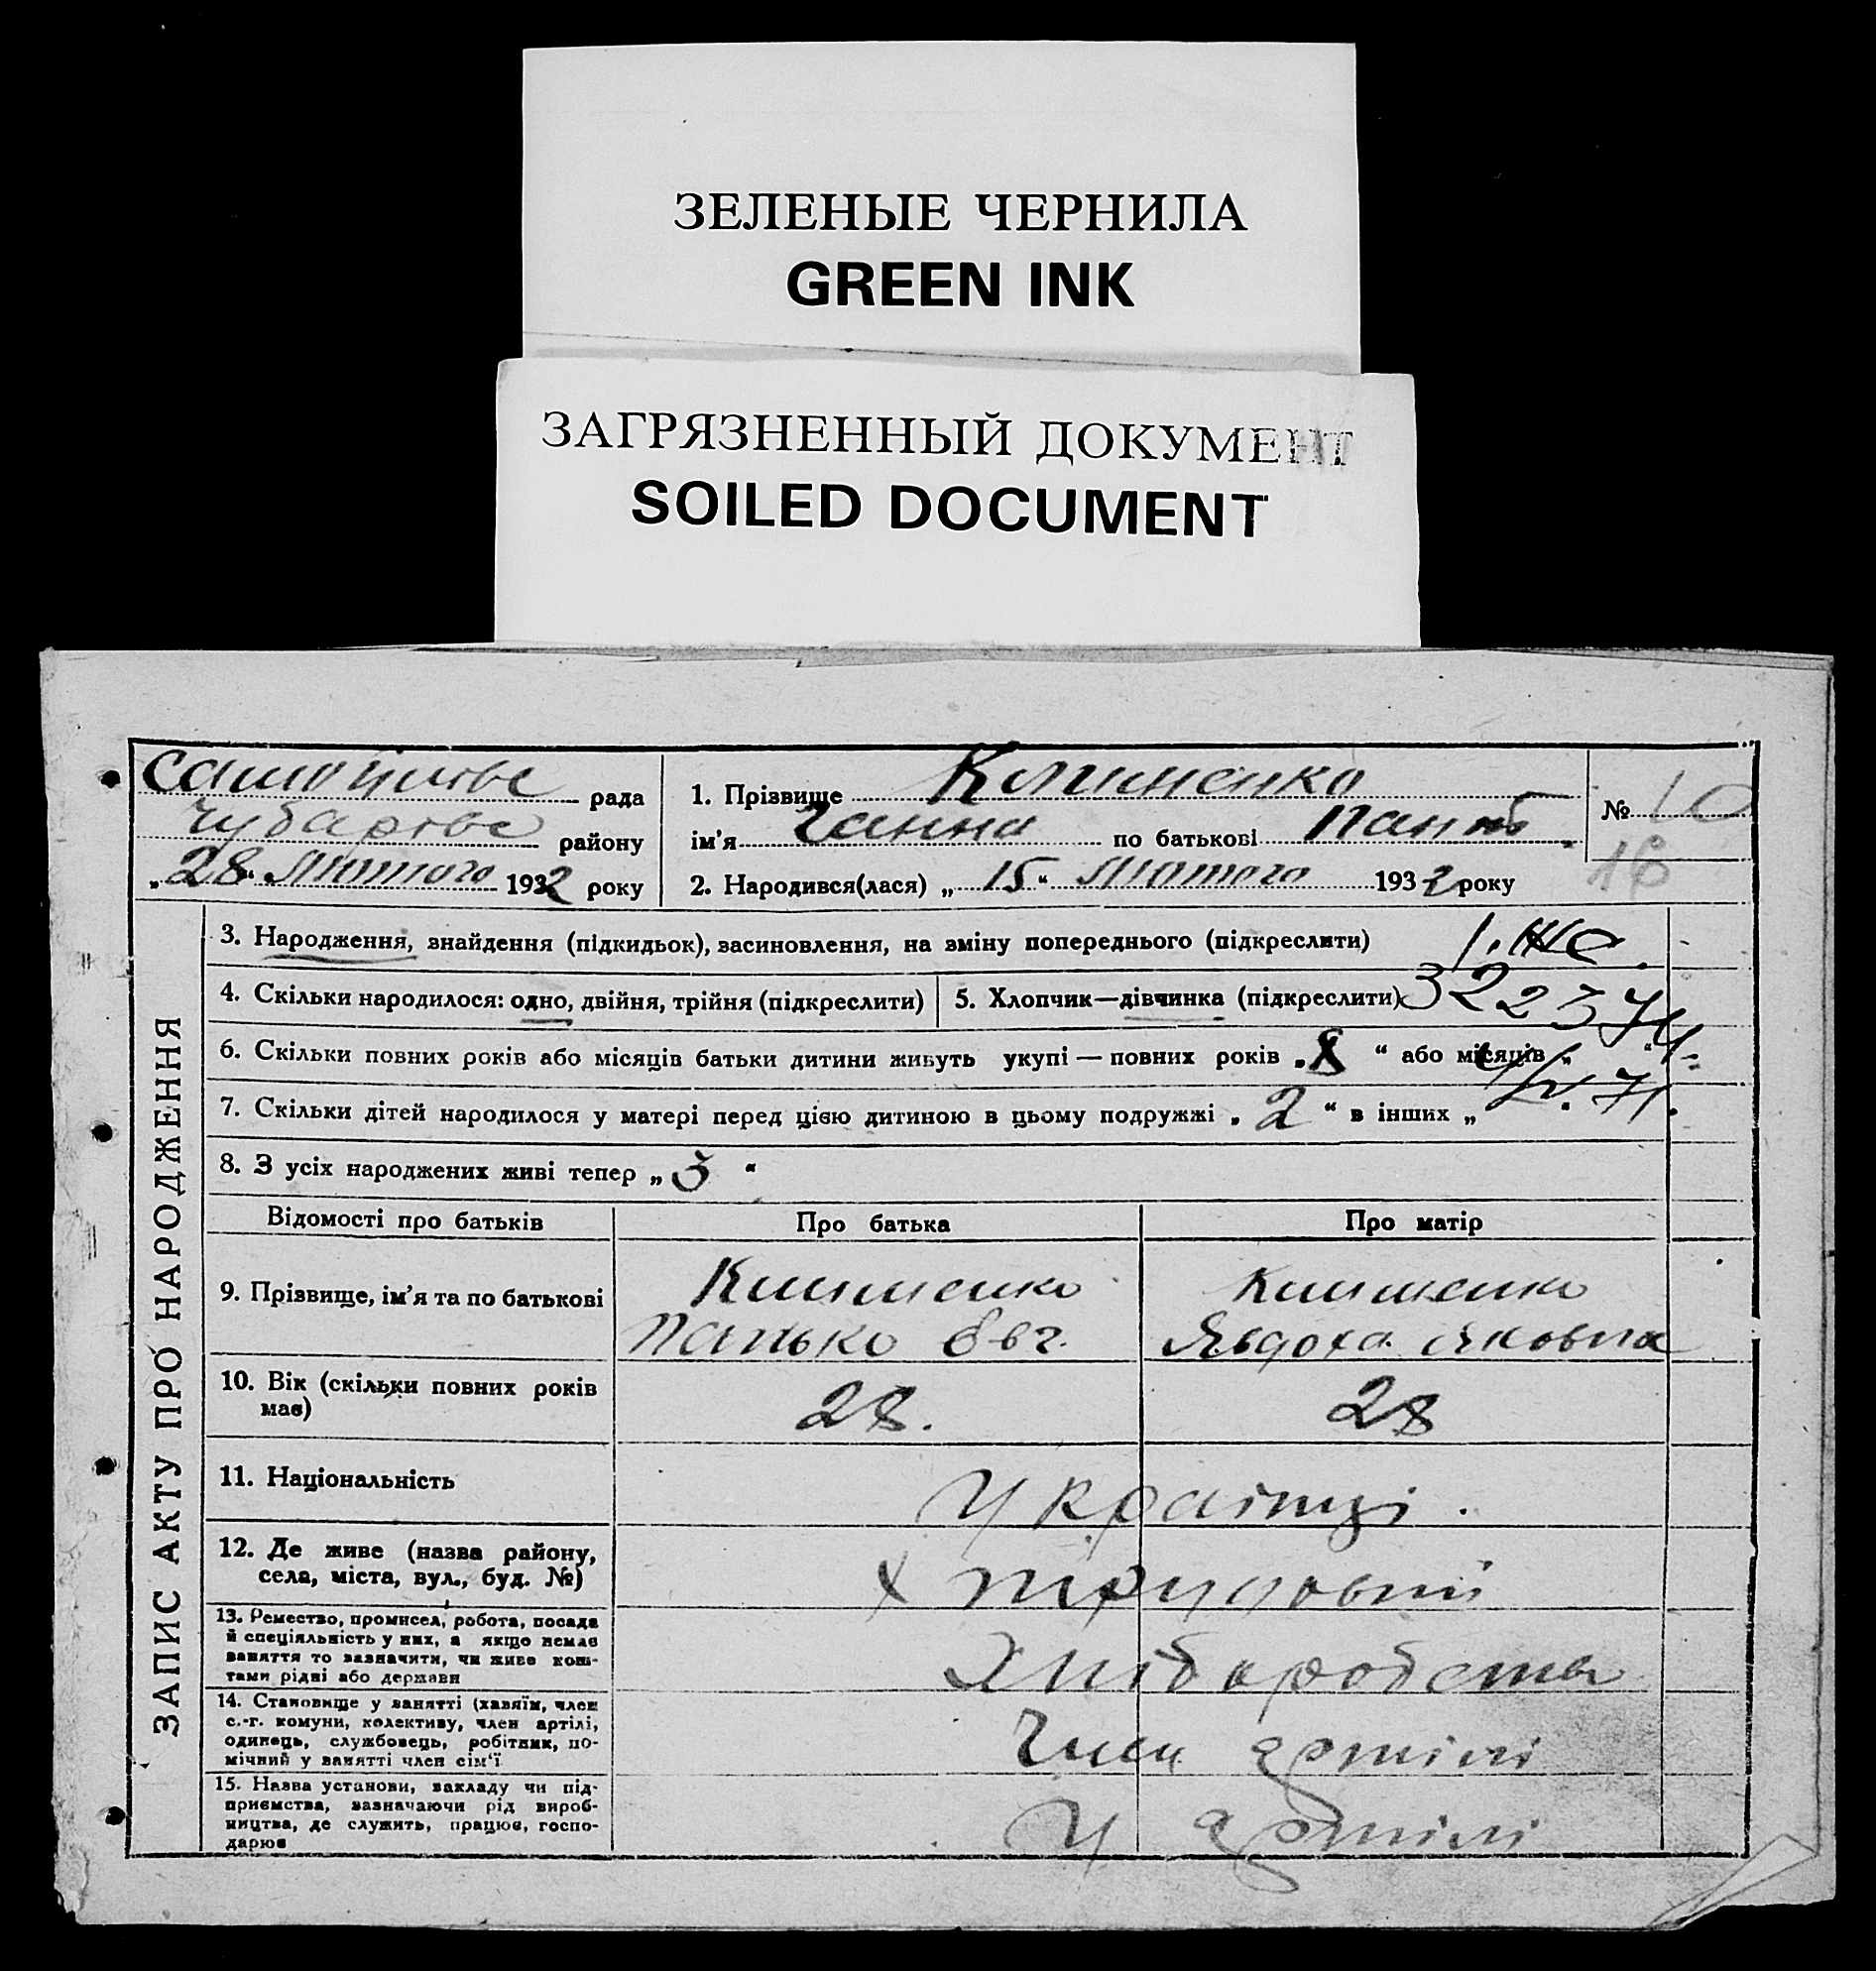 ЗЕЛЕНЫЕ ЧЕРНИЛА
GREEN INK
ЗАГРЯЗНЕННЫЙ ДОКУМЕНТ
SOILED DOCUMENT
рада
Чубарове району
„28“ Лютого 1932 року
1. Прізвище Клименко
ім'я Ганна по батькові
2. Народився(лася) „15“ Лютого 1932 року
№ 10
18
ЗАПИС АКТУ ПРО НАРОДЖЕННЯ
3. Народження, знайдення (підкидьок), засиновлення, на зміну попереднього (підкреслити)
4. Скільки народилося: одно, двійня, трійня (підкреслити)
5. Хлопчик—дівчинка (підкреслити)
6. Скільки повних років або місяців батьки дитини живуть укупі — повних років „ “ або місяців „ “
7. Скільки дітей народилося у матері перед цією дитиною в цьому подружжі „2“ в інших „ “
8. З усіх народжених живі тепер „3“
Відомості про батьків
Про батька
Про матір
9. Прізвище, ім'я та по батькові
Клименко
Панько Євг.
Клименко
Явдоха Яковна
10. Вік (скільки повних років
має)
28.
28
11. Національність
Українці.
12. Де живе (назва району,
села, міста, вул., буд. №)
х Трудовий
13. Ремество, промисел, робота, посада
й спеціяльність у них, а якщо немає
заняття то зазначити, чи живе кош-
тами рідні або держави
Хліборобства
14. Становище у занятті (хазяїн, член
с.-г. комуни, колективу, член артілі,
одинець, службовець, робітник, по-
мічний у занятті член сім'ї
Член артілі
15. Назва установи, закладу чи під-
приємства, зазначаючи рід вироб-
ництва, де служить, працює, госпо-
дарює
У артілі